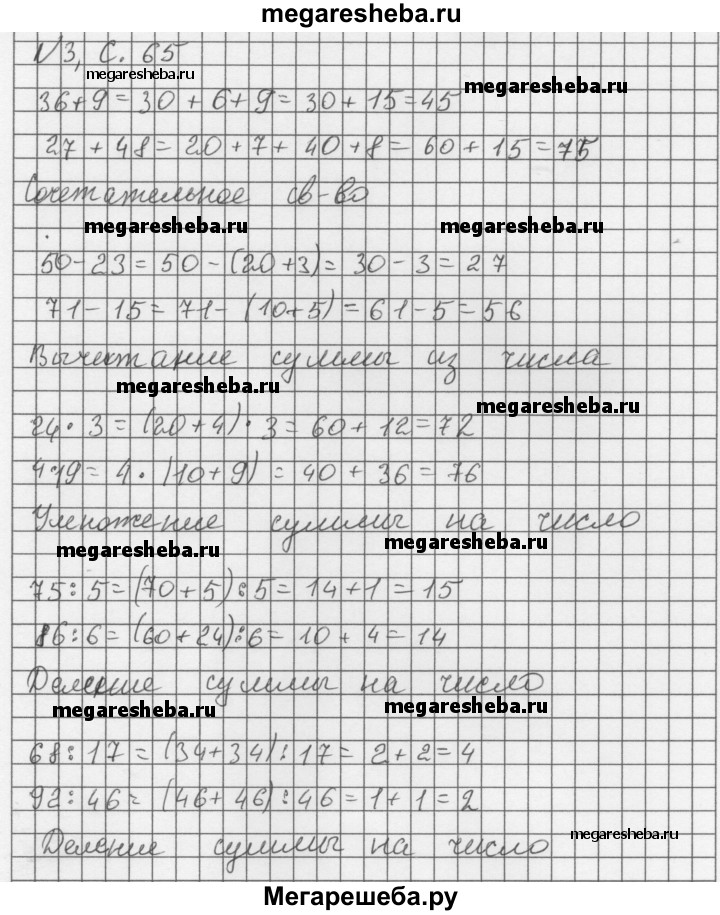 megaresheba.ru
№3, с. 65
megaresheba.ru
megaresheba.ru
36+9=30+6+9=30+15=45
27+48=20+7+40+8=60+15=75
Сочетательное св-во
megaresheba.ru megaresheba.ru
50-23=50-(20+3)=30-3=27
71-15=71-(10+5)=61-5=56
Вычектание суммы из числа
megaresheba.ru
megaresheba.ru
24·3=(20+4)·3=60+12=72
4·19=4·(10+9)=40+36=76
Умножение суммы на число
megaresheba.ru megaresheba.ru
75:5=(70+5):5=14+1=15
86:6=(60+24):6=10+4=14
Деление суммы на число
megaresheba.ru megaresheba.ru
68:17=(34+34):17=2+2=4
92:46=(46+46):46=1+1=2
megaresheba.ru
Деление суммы на число
Мегарешеба.ру